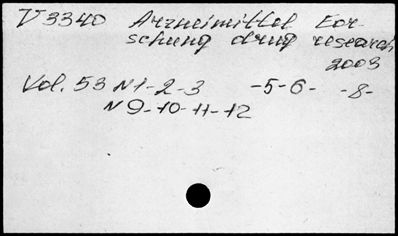 V 3340 Arzneimittel For-
schung drug research
2003
Vol. 53 N 1-2-3 -5-6- -8-
N 9-10-11-12